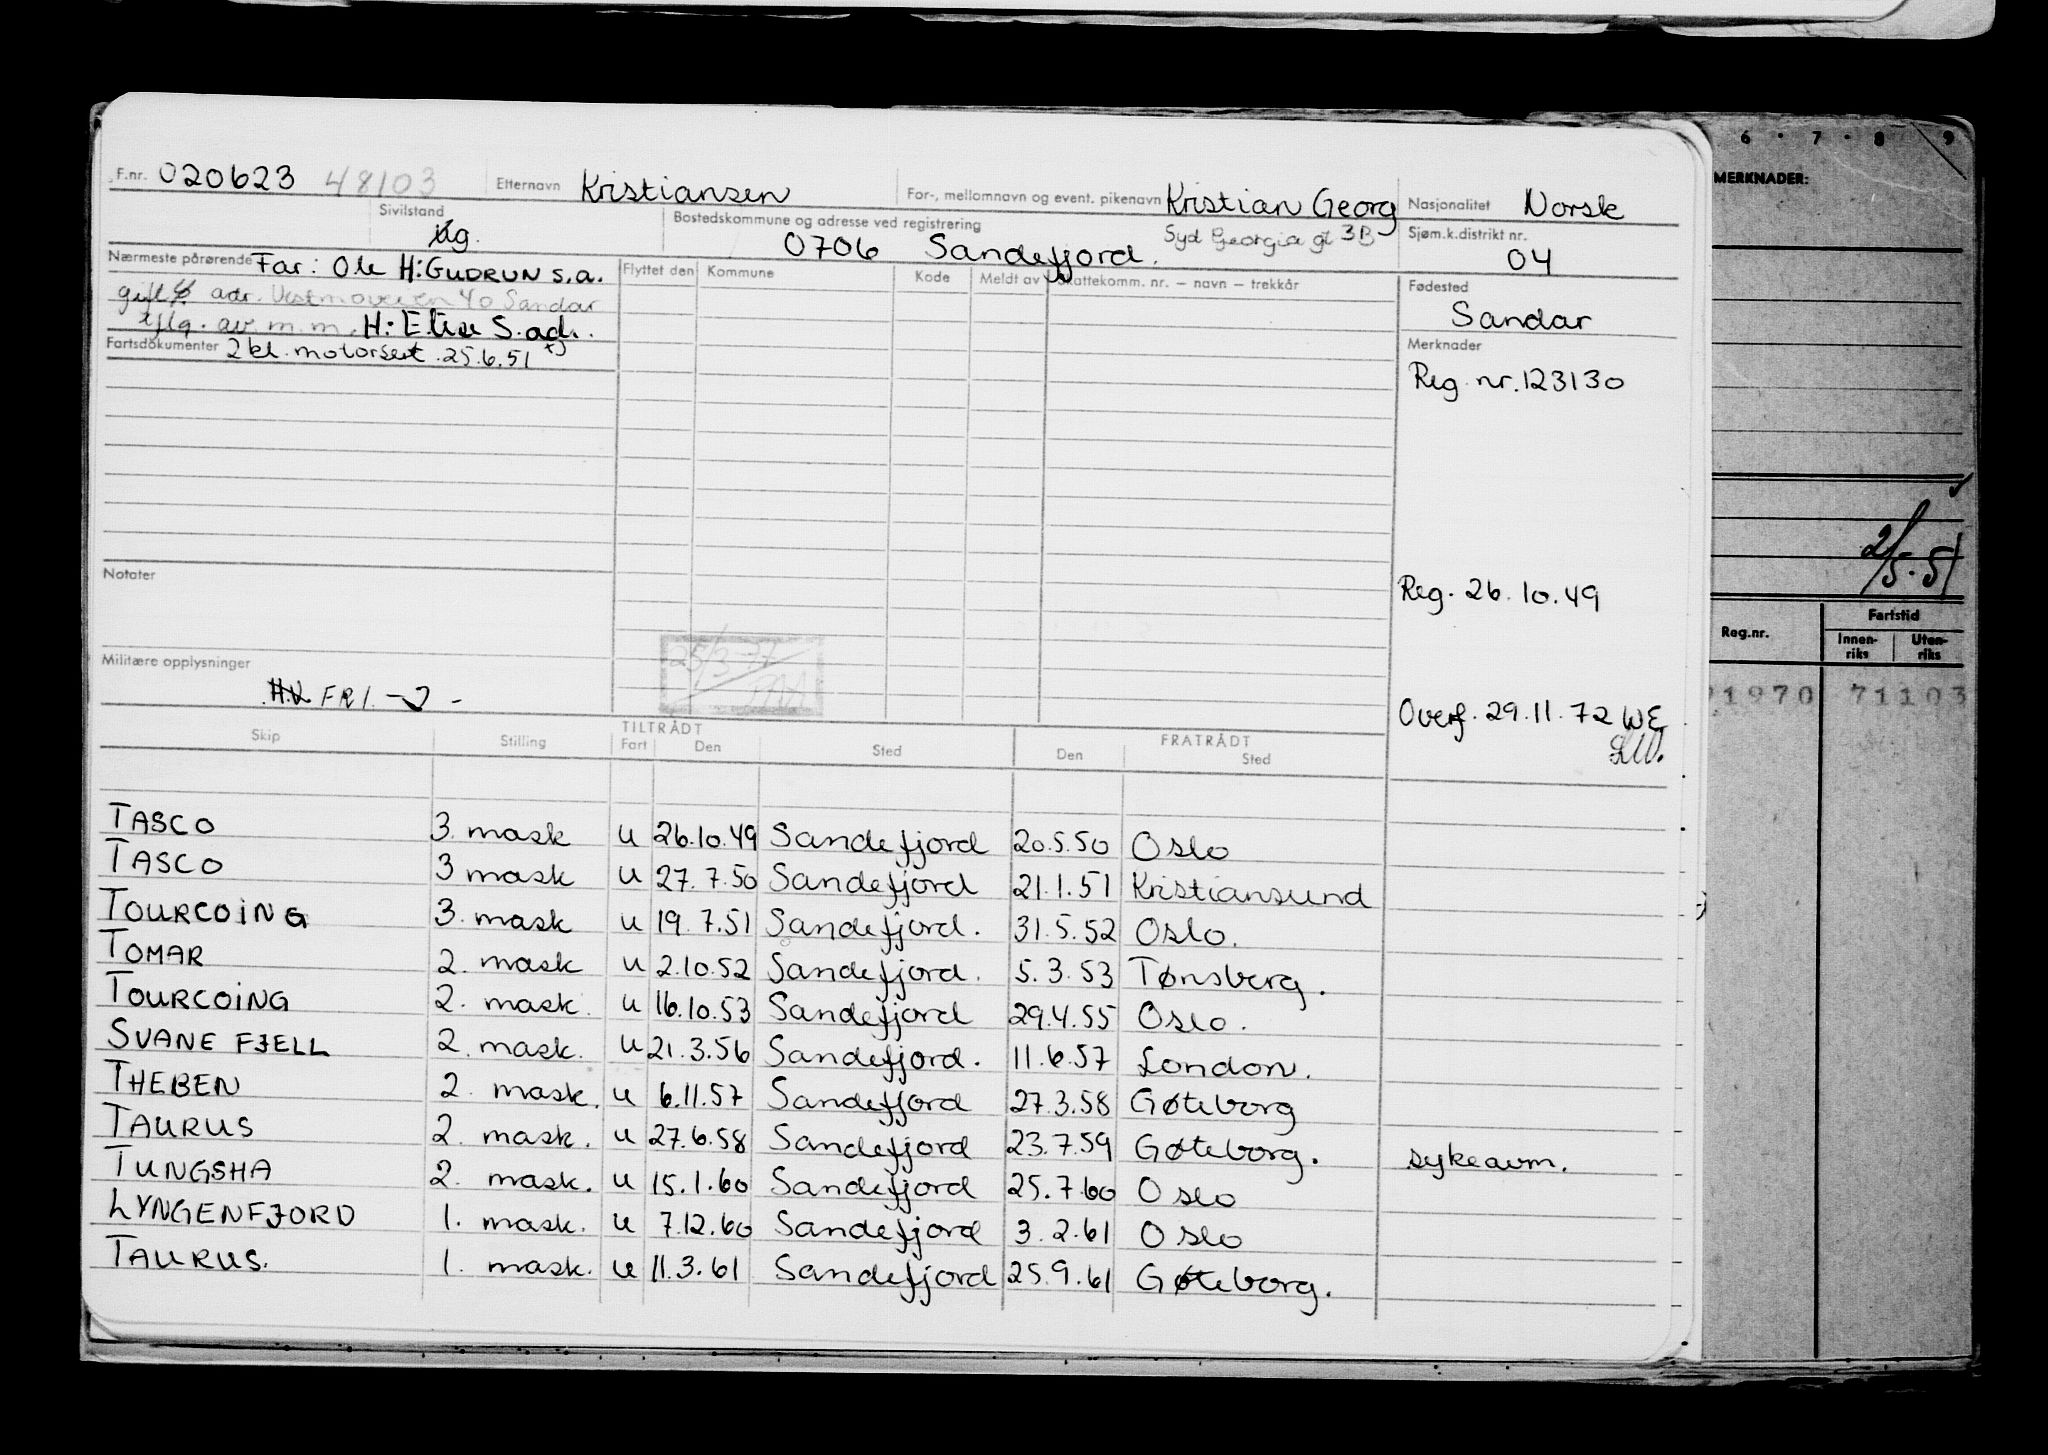 F.nr. 020623 48103 Etternavn Kristiansen For-, mellomnavn og event. pikenavn Kristian Georg Nasjonalitet Norsk
Sivilstand ug. Bostedskommune og adresse ved registrering 0706 Sandefjord. Syd Georgia gt 3B Sjøm.k.distrikt nr. 04
Nærmeste pårørende Far: Ole H: GUDRUN S.a. Flyttet den Kommune Kode Meldt av Skattekomm. nr. — navn — trekkår Fødested
gift adr. Vestmoveien 40 Sandar Sandar
iflg. av. m.m. H: Elise S. adr.
Fartsdokumenter 2 kl. motorsert. 25.6.51 Merknader
Reg. nr. 123130
Notater
Reg. 26.10.49
25/3-77
Militære opplysninger
H.V. FRI.
Overf. 29.11.72 WE
Skip Stilling TILTRÅDT Fart Den Sted FRATRÅDT Den Sted
TASCO 3. mask u 26.10.49 Sandefjord 20.5.50 Oslo
TASCO 3 mask u 27.7.50 Sandefjord 21.1.51 Kristiansund
TOURCOING 3. mask u 19.7.51 Sandefjord. 31.5.52 Oslo.
TOMAR 2. mask u 2.10.52 Sandefjord. 5.3.53 Tønsberg.
TOURCOING 2. mask. u 16.10.53 Sandefjord 29.4.55 Oslo.
SVANE FJELL 2. mask. u 21.3.56 Sandefjord. 11.6.57 London.
THEBEN 2. mask. u 6.11.57 Sandefjord 27.3.58 Gøteborg
TAURUS 2. mask. u 27.6.58 Sandefjord 23.7.59 Gøteborg. sykeavm.
TUNGSHA 2. mask. u 15.1.60 Sandefjord 25.7.60 Oslo
LYNGENFJORD 1. mask. u 7.12.60 Sandefjord 3.2.61 Oslo
TAURUS. 1. mask. u 11.3.61 Sandefjord 25.9.61 Gøteborg.
6 • 7 • 8 9
MERKNADER:
2/5-51
Reg.nr. Fartstid
Innen-riks Uten-riks
1970 71103